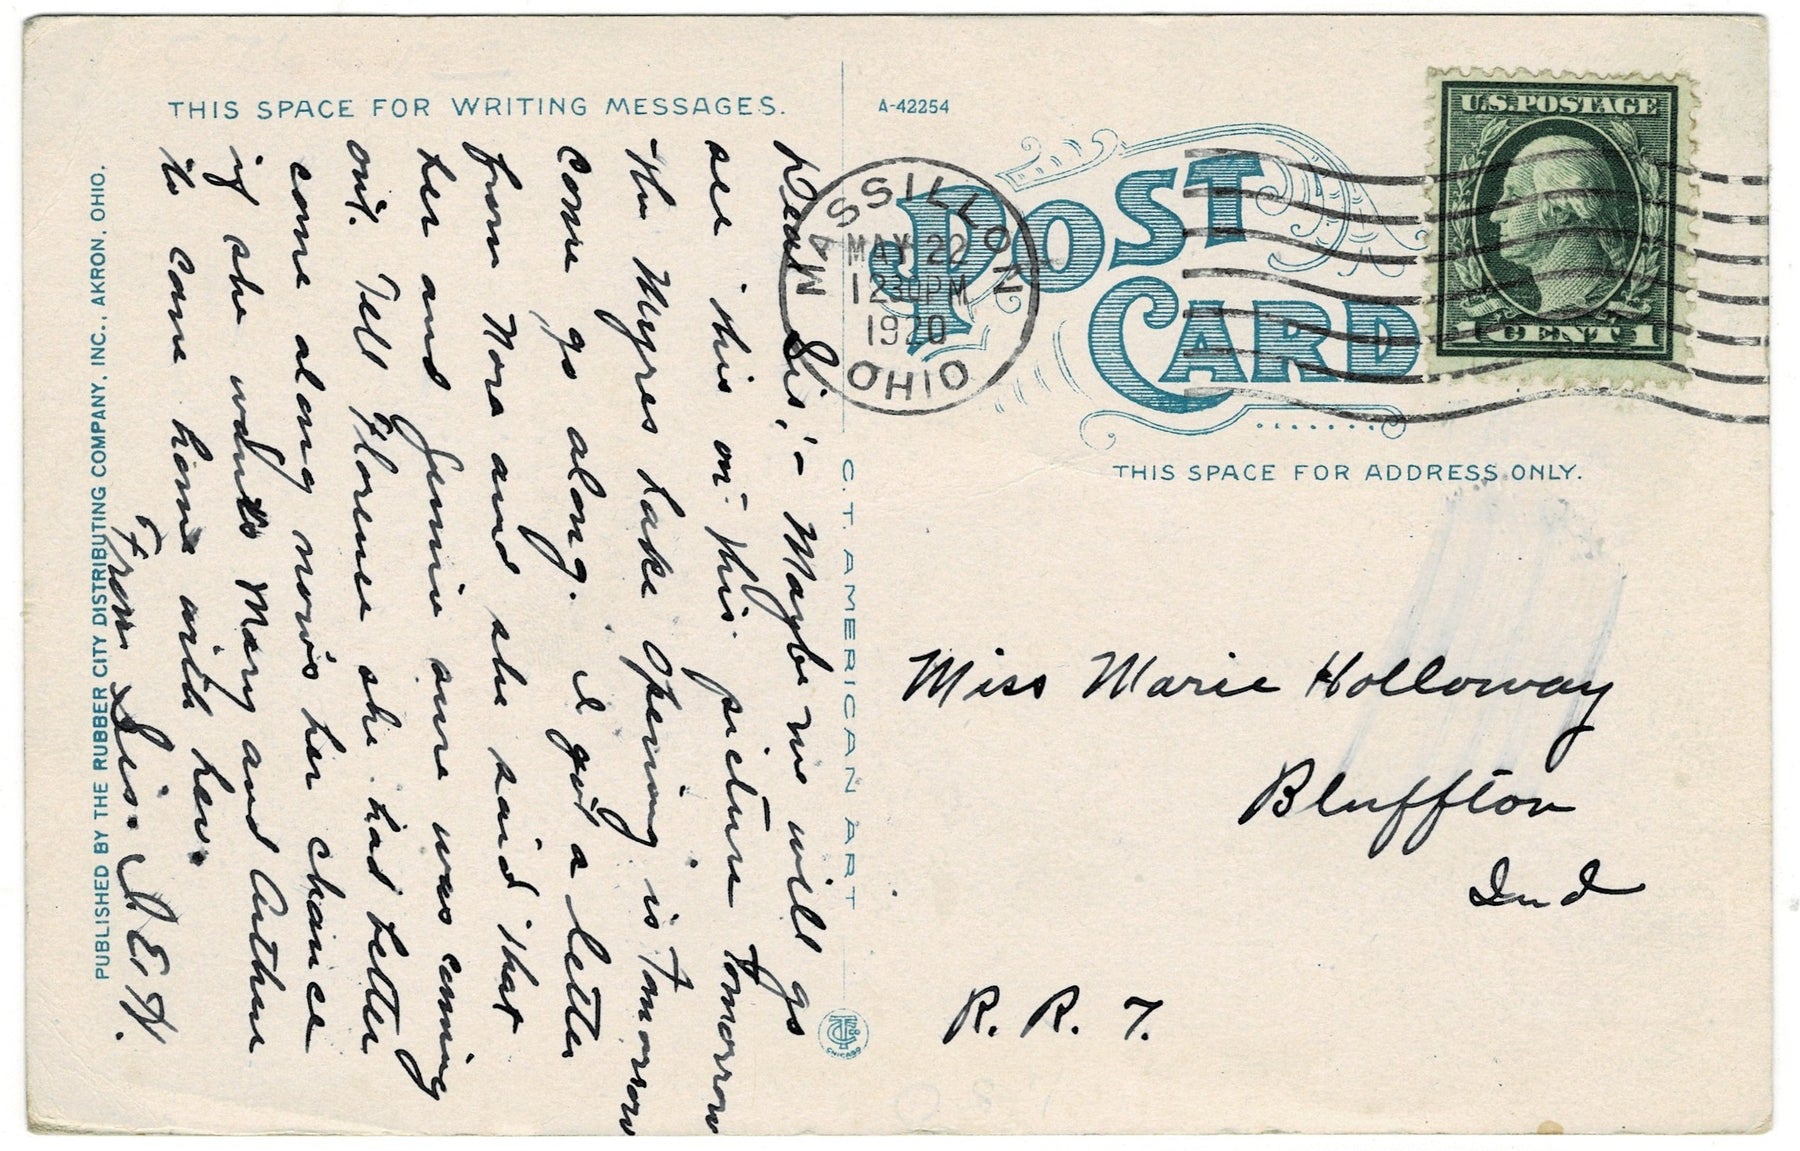 THIS SPACE FOR WRITING MESSAGES.
Dear Sis,:- Maybe we will go
see this on this picture tomorrow
the Myres Lake opening is tomorrow
come go along. I got a letter
from Nora and she said that
her and Jennie sure was coming
out. Tell Florense she had better
come along now's her chance
if she wants Mary and Arthur
to come home with her.
From Sis. I E H.
PUBLISHED BY THE RUBBER CITY DISTRIBUTING COMPANY, INC., AKRON, OHIO.
C. T. AMERICAN ART
CHICAGO
A-42254
POST
CARD
MASSILLON
MAY 22
1230PM
1920
OHIO
U.S. POSTAGE
1 CENT 1
THIS SPACE FOR ADDRESS ONLY.
Miss Marie Holloway
Bluffton
Ind
R. R. 7.